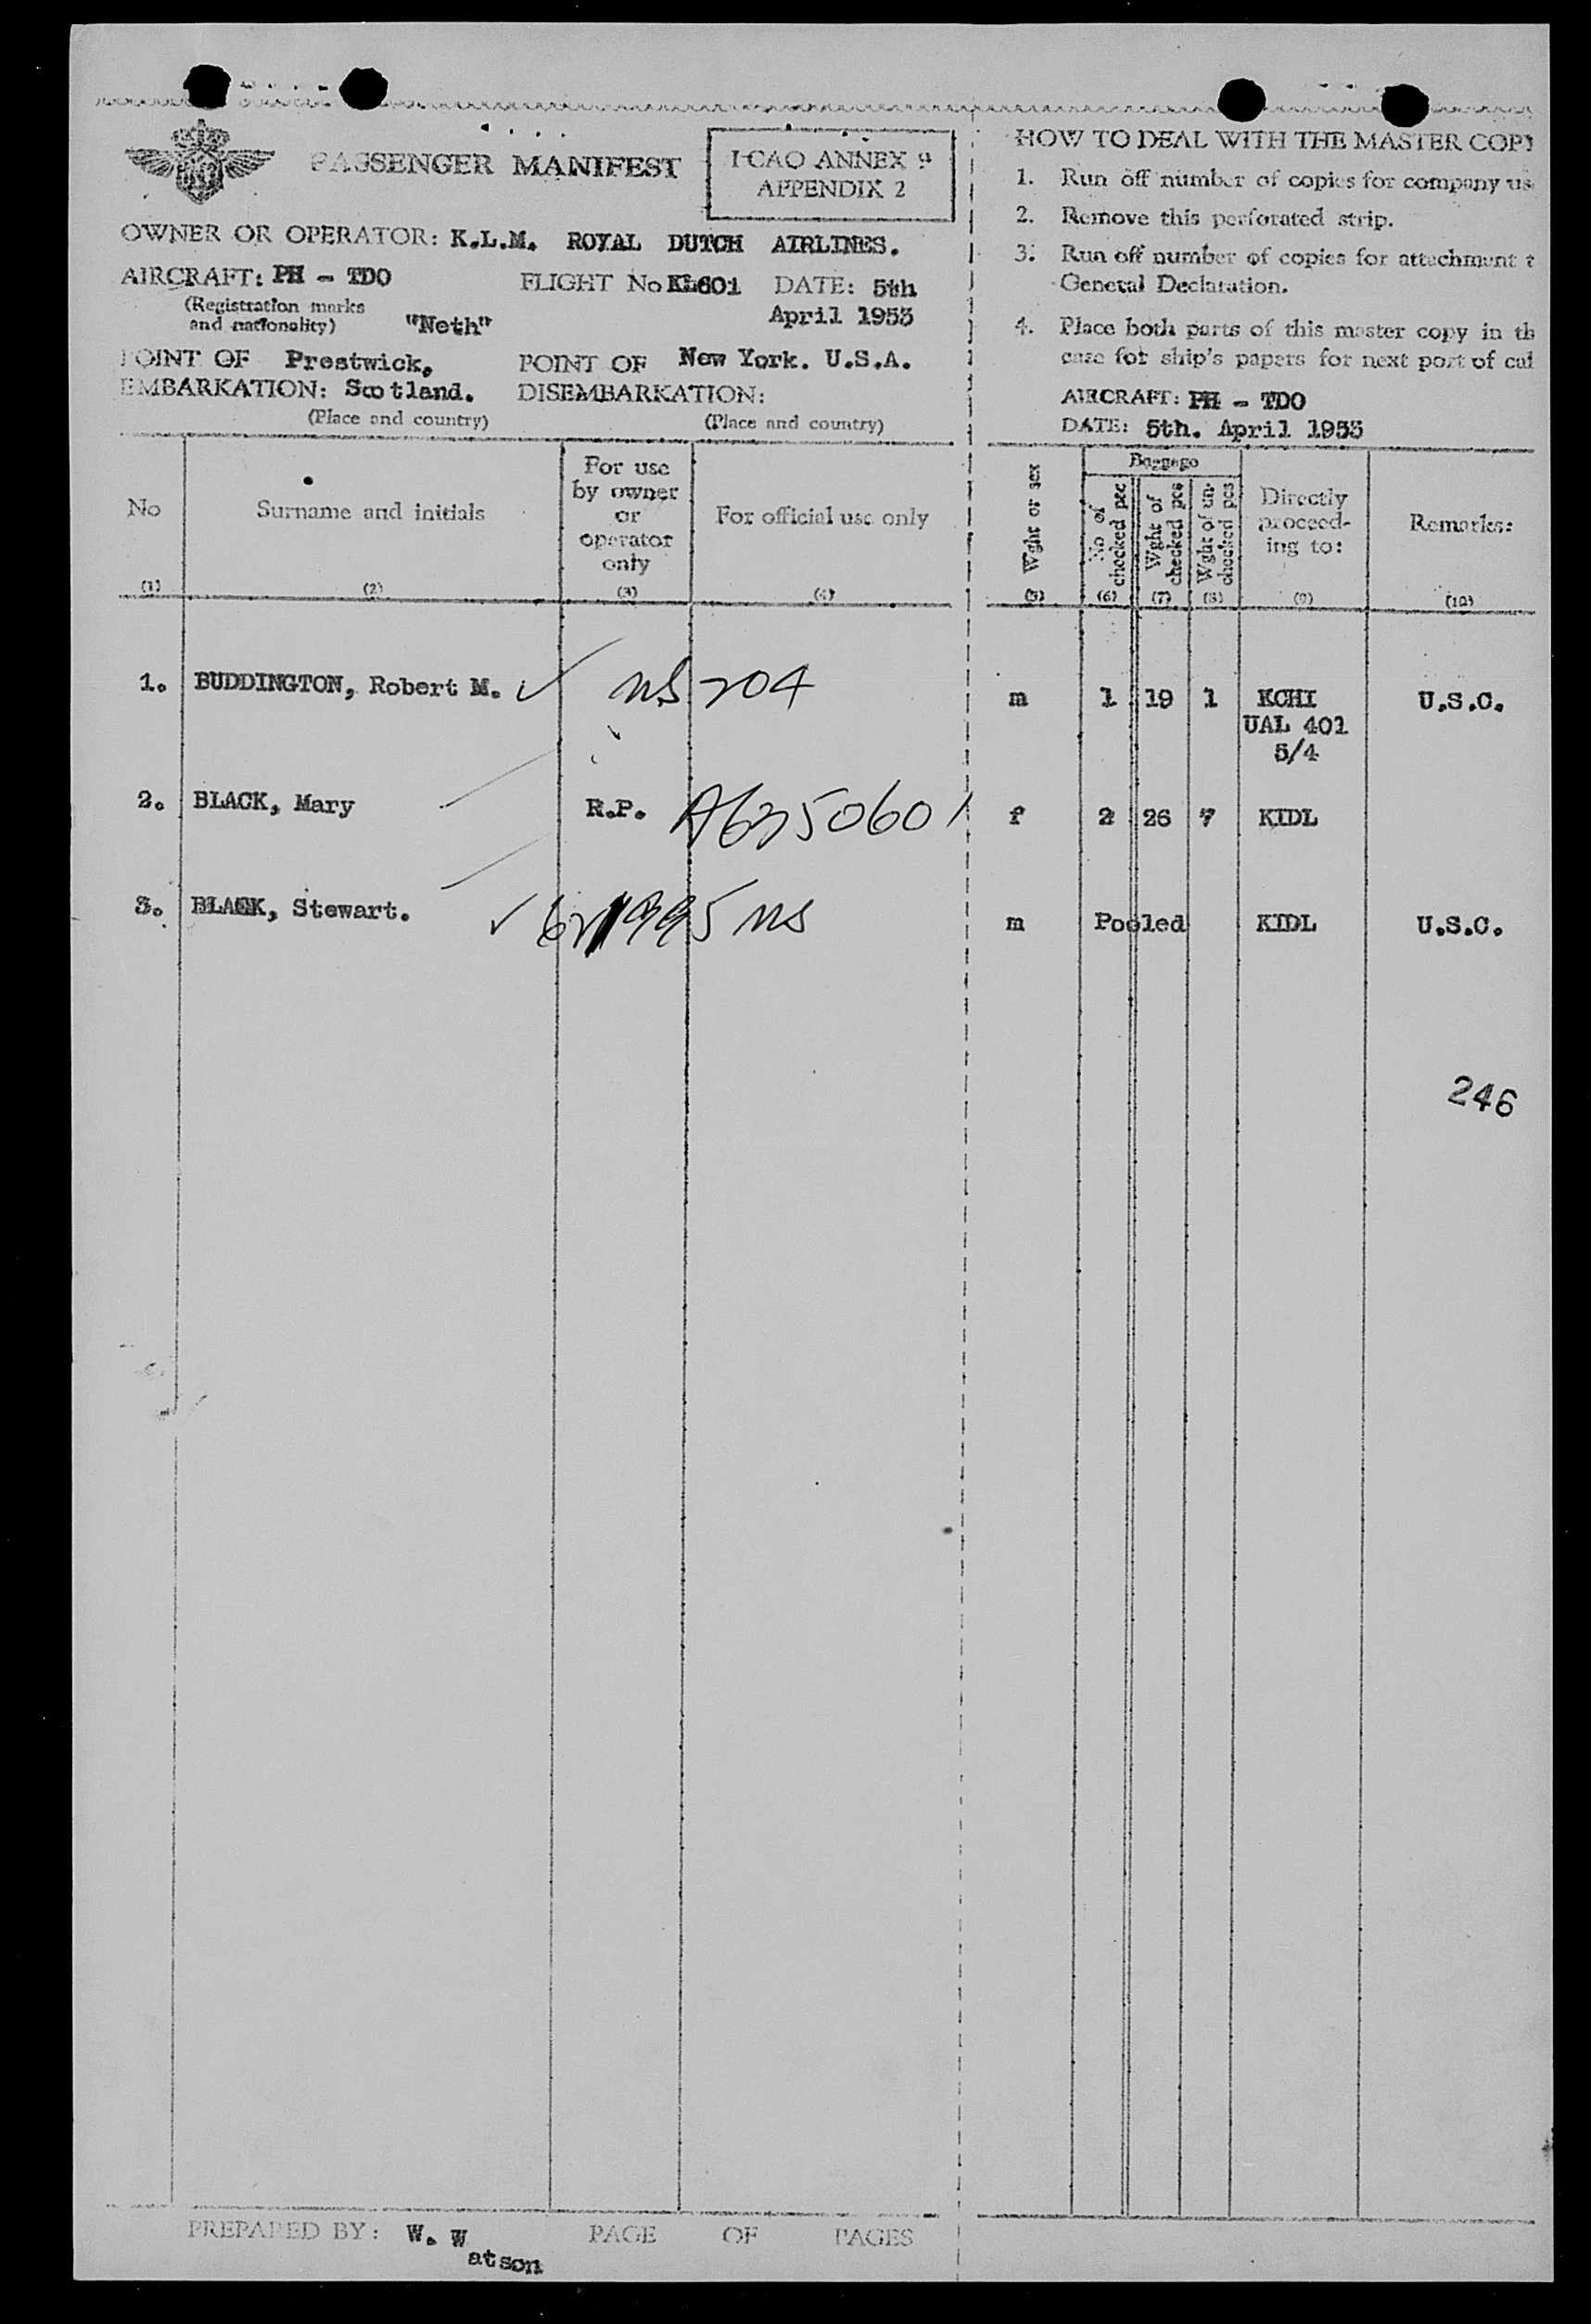 PASSENGER MANIFEST
ICAO ANNEX 9
APPENDIX 2
OWNER OR OPERATOR: K.L.M. ROYAL DUTCH AIRLINES.
AIRCRAFT: PH - TDO FLIGHT No KL601 DATE: 5th
(Registration marks
and nationality) "Neth" April 1953
POINT OF Prestwick, POINT OF New York. U.S.A.
EMBARKATION: Scotland. DISEMBARKATION:
(Place and country) (Place and country)
HOW TO DEAL WITH THE MASTER COPY
1. Run off number of copies for company us
2. Remove this perforated strip.
3. Run off number of copies for attachment t
General Declaration.
4. Place both parts of this master copy in th
case for ship's papers for next port of cal
AIRCRAFT: PH - TDO
DATE: 5th. April 1953
No
(1)
Surname and initials
(2)
For use
by owner
or
operator
only
(3)
For official use only
(4)
Wght or sex
(5)
Baggage
No of
checked pec
(6)
Wght of
checked pce
(7)
Wght of un-
checked pcs
(8)
Directly
proceed-
ing to:
(9)
Remarks:
(10)
1. BUDDINGTON, Robert M. ns 204 m 1 19 1 KCHI U.S.C.
UAL 401
5/4
2. BLACK, Mary R.P. f 2 26 7 KIDL
3. BLACK, Stewart. ns m Pooled KIDL U.S.C.
246
PREPARED BY: W. W
atson
PAGE OF PAGES